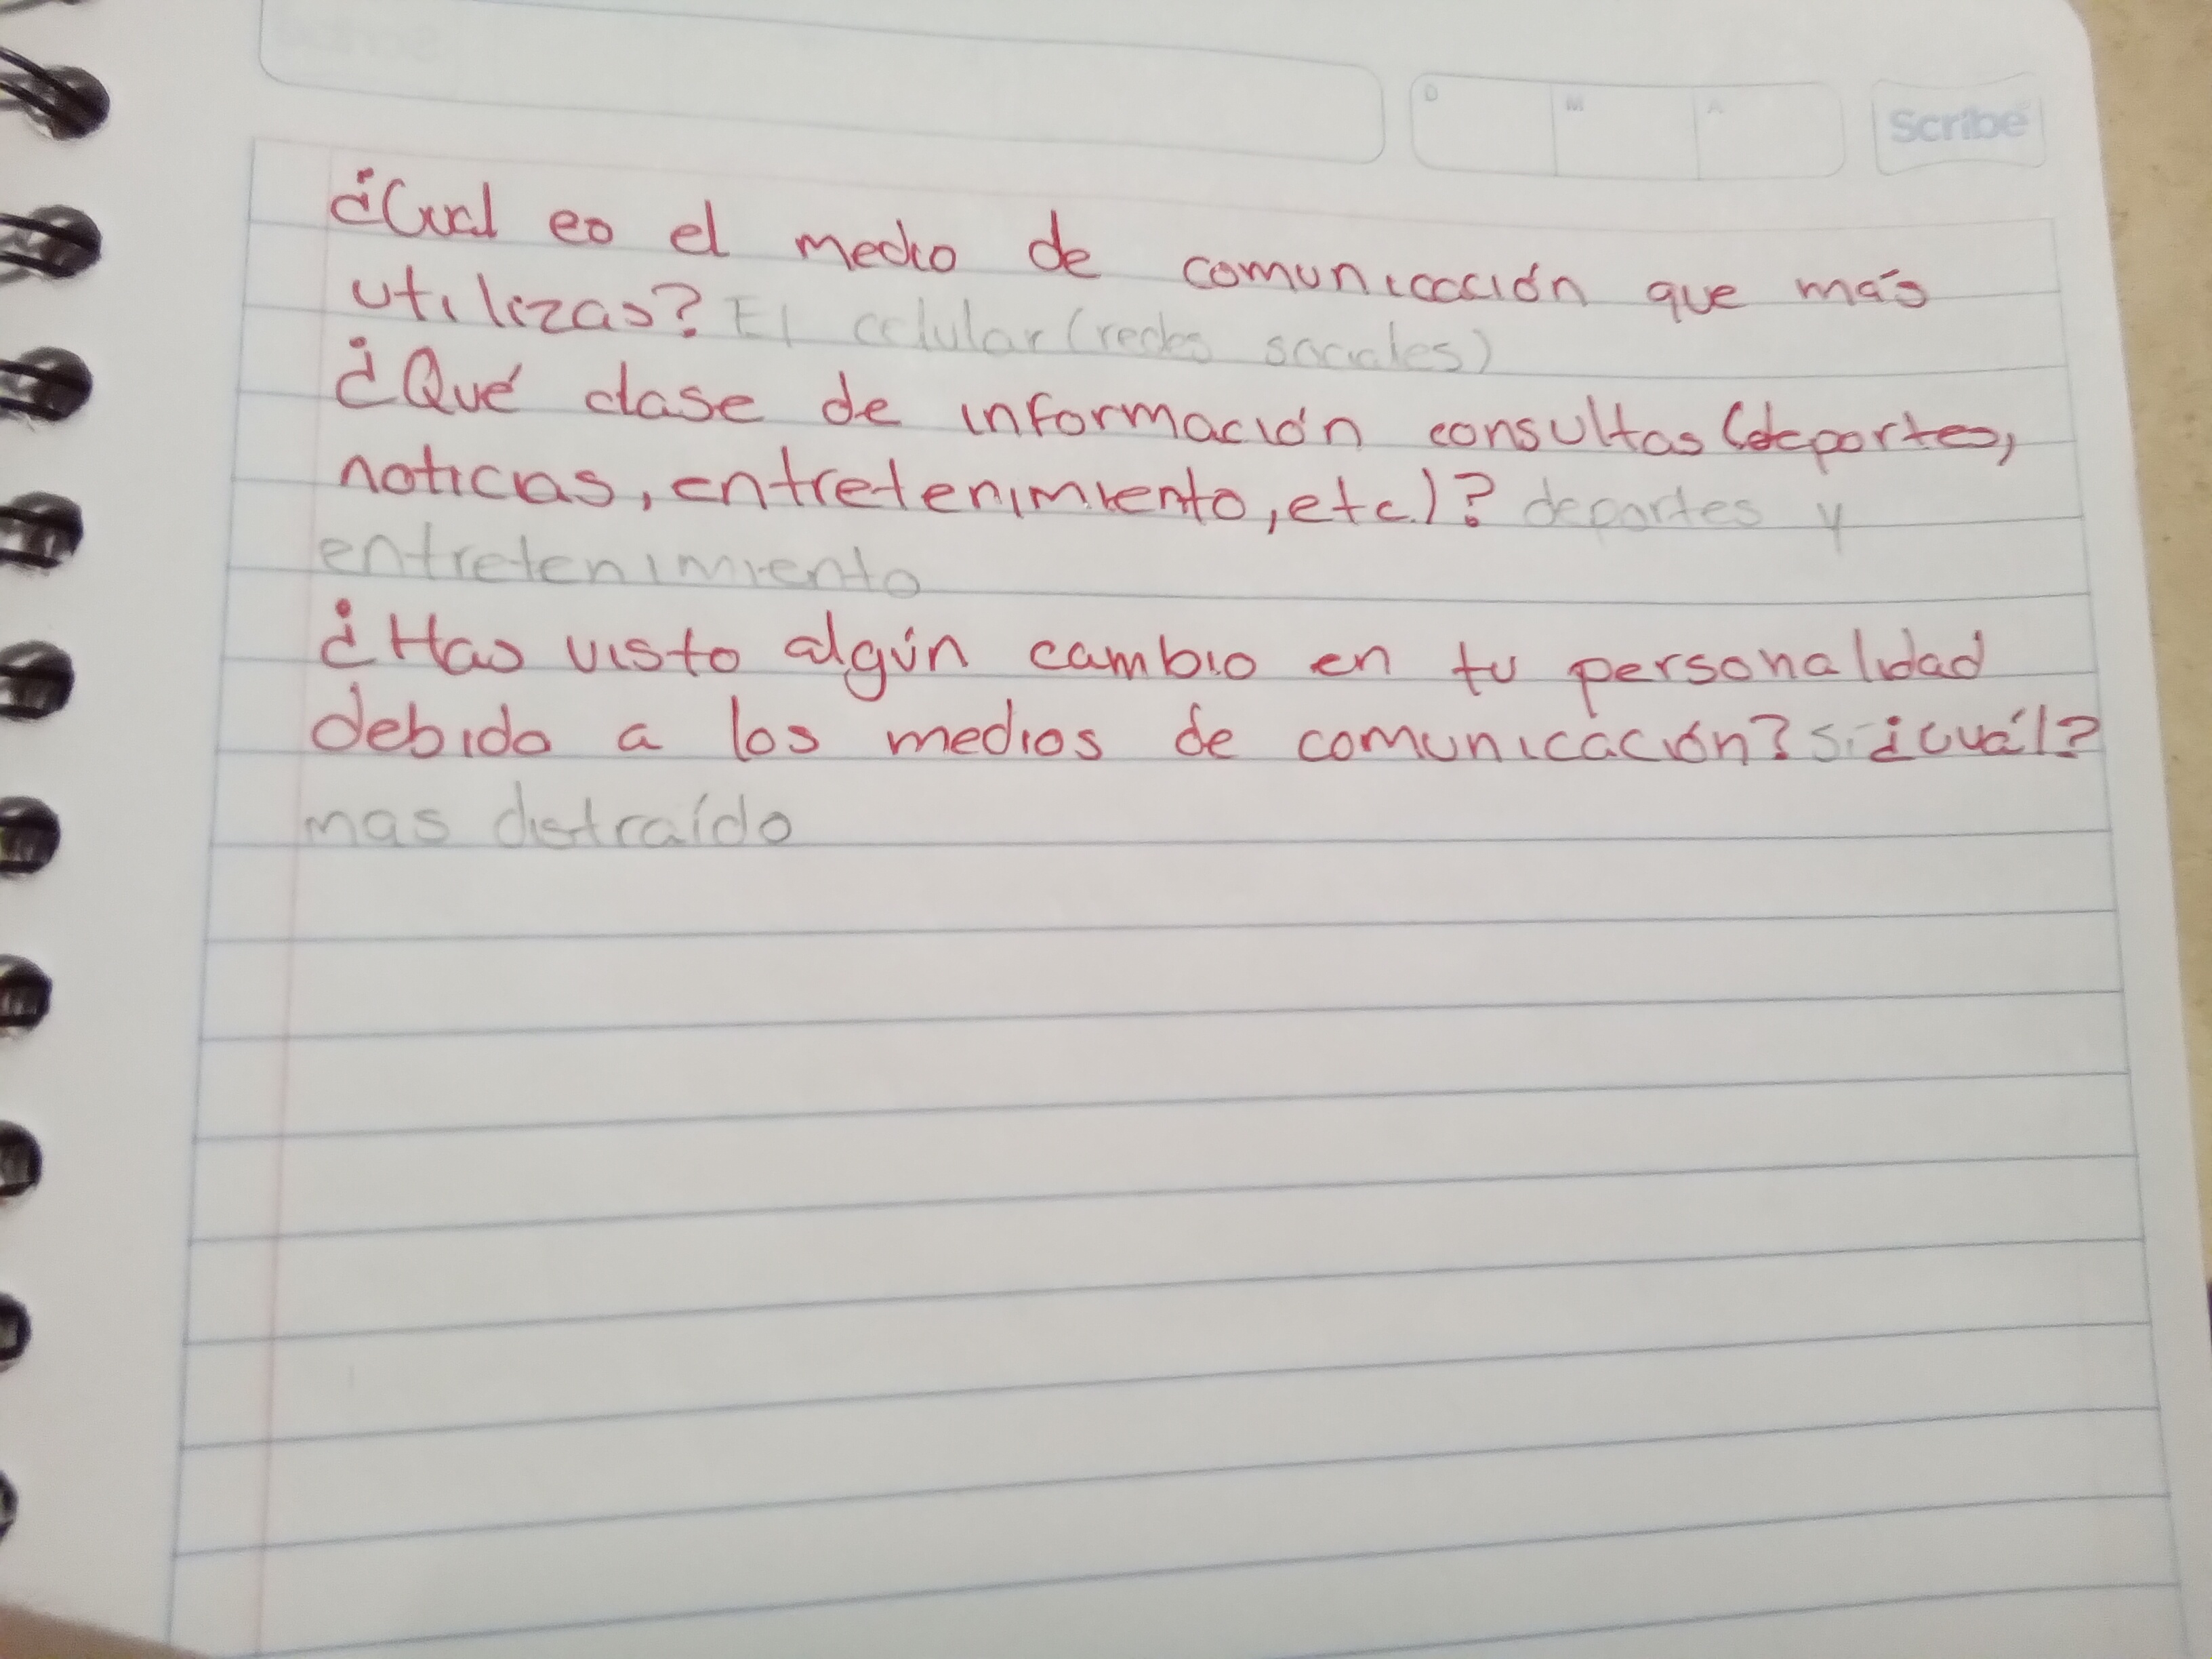 D M A Scribe
¿Cual es el medio de comunicación que más
utilizas? El celular (redes sociales)
¿Qué clase de información consultas (deportes,
noticias, entretenimiento, etc.)? deportes y
entretenimiento
¿Has visto algún cambio en tu personalidad
debido a los medios de comunicación? Si ¿cuál?
mas distraído